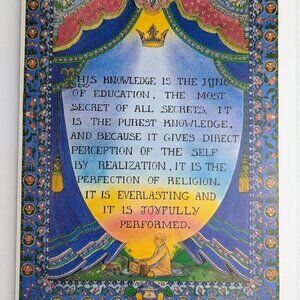 THIS KNOWLEDGE IS THE KING
OF EDUCATION, THE MOST
SECRET OF ALL SECRETS. IT
IS THE PUREST KNOWLEDGE,
AND BECAUSE IT GIVES DIRECT
PERCEPTION OF THE SELF
BY REALIZATION, IT IS THE
PERFECTION OF RELIGION.
IT IS EVERLASTING AND
IT IS JOYFULLY
PERFORMED.